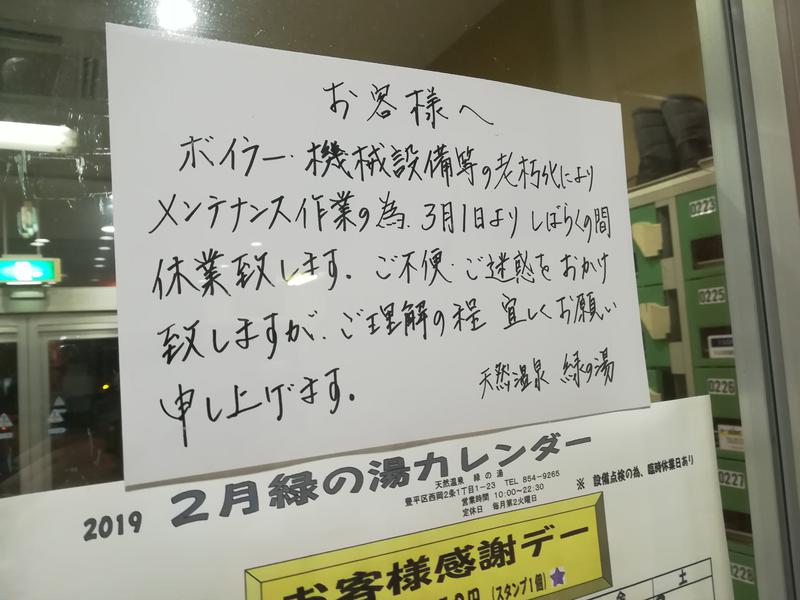 お客様へ
ボイラー、機械設備等の老朽化により
メンテナンス作業の為、3月1日よりしばらくの間
休業致します。ご不便・ご迷惑をおかけ
致しますが、ご理解の程 宜しくお願い
申し上げます。
天然温泉 緑の湯
2019 2月緑の湯カレンダー
天然温泉 緑の湯
豊平区西岡2条1丁目1-23 TEL 854-9265
営業時間 10:00~22:30
定休日 毎月第2火曜日
※ 設備点検の為、臨時休業日あり
お客様感謝デー
(スタンプ1個)
金 土
0223
0225
0226
0227
0228